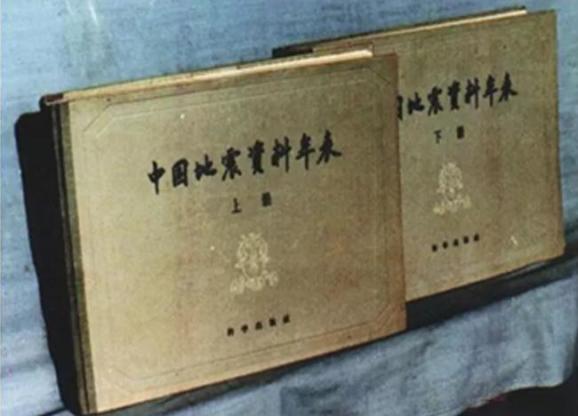 中国地震資料年表
上册
科学出版社
国地震資料年表
下册
科学出版社